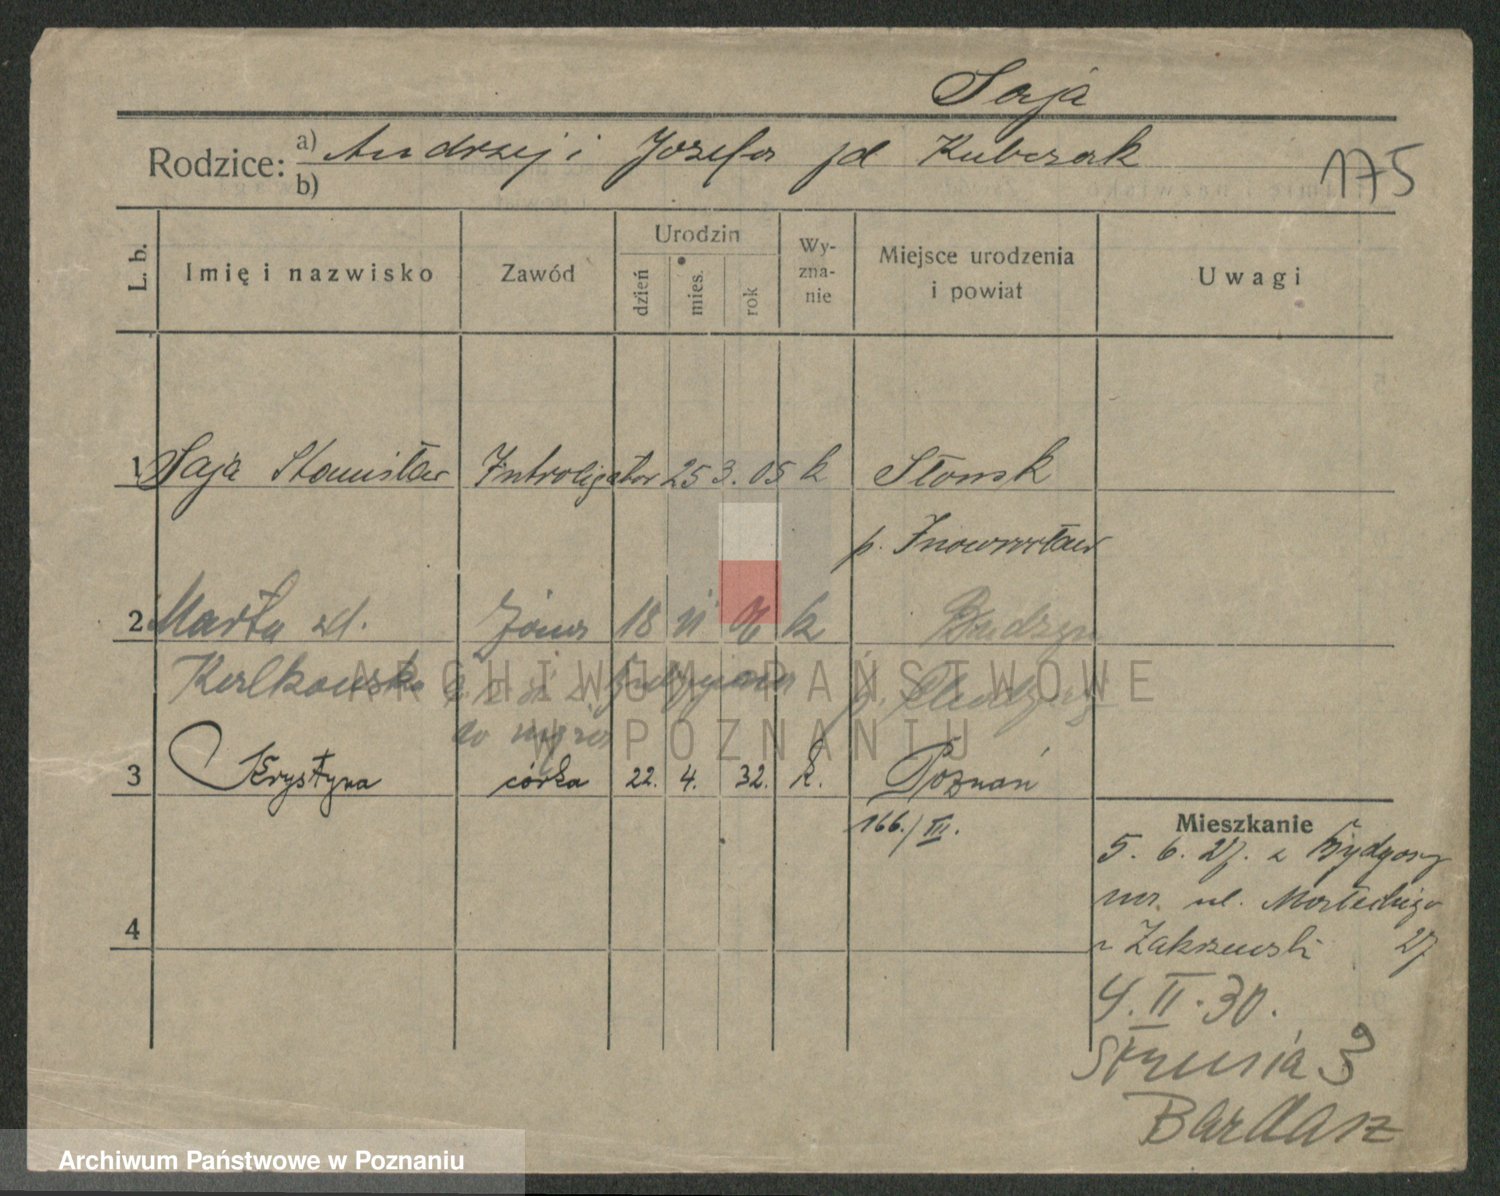 Saja
Rodzice: a) Andrzej i Józefa zd Kubczak
b)
175
L. b.
Imię i nazwisko
Zawód
Urodzin
dzień
mies.
rok
Wy-
zna-
nie
Miejsce urodzenia
i powiat
Uwagi
1 Saja Stanisław Introligator 25 3. 05 k Słonsk
p. Inowrocław
2 Marta zd. żona 18 k Budzyn
Kulkowska
ARCHIWUM PAŃSTWOWE
W POZNANIU
3 Krystyna córka 22. 4. 32. k. Poznań
166./III.
Mieszkanie
5. 6. 27. z Bydgoszcz
na ul.
Zakrzewski 27
4
4. II. 30.
Strusia 3
Bardasz
Archiwum Państwowe w Poznaniu